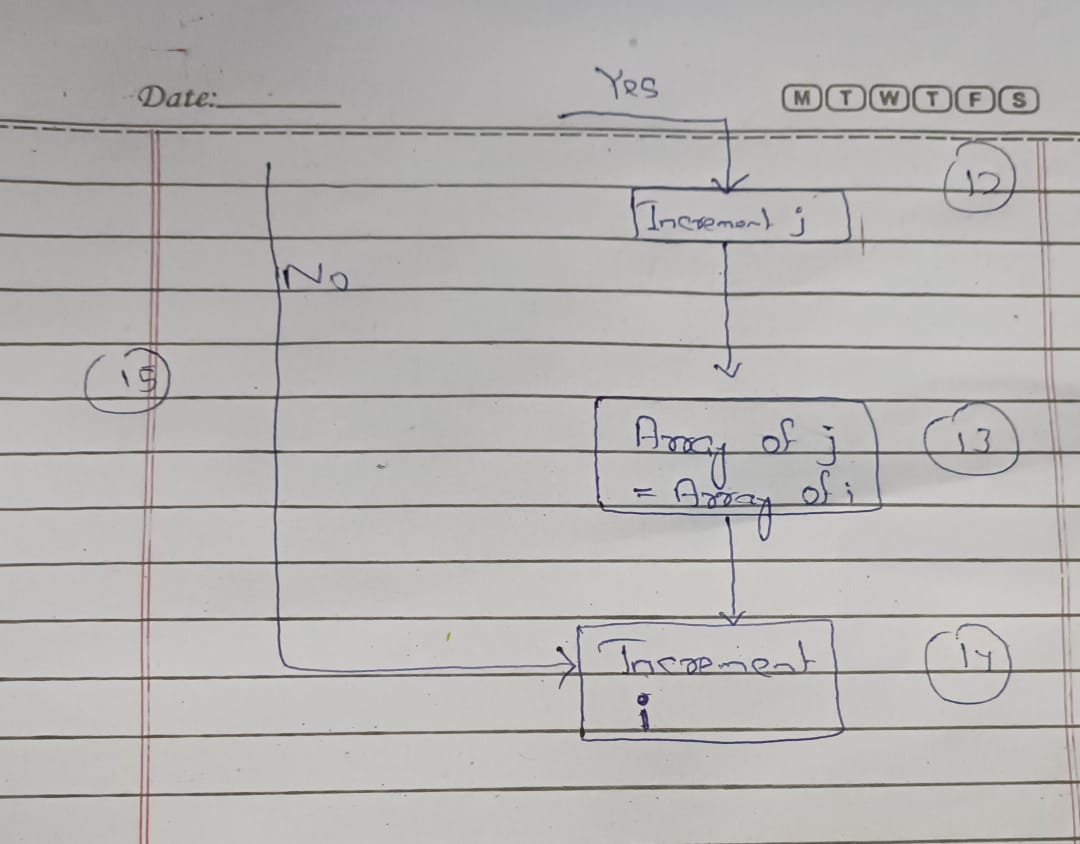 Yes
Date:
M T W T F S
12
Increment j
No
15
Array of j
= Array of i
13
Increment
i
14